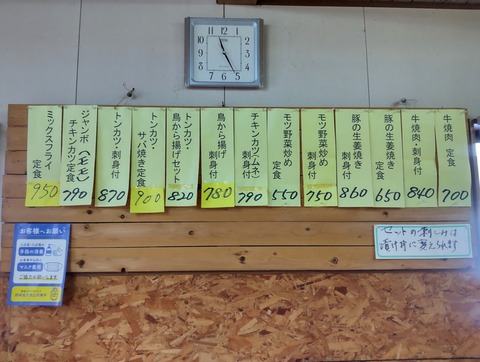 牛焼肉 定食
700
牛焼肉・刺身付
840
豚の生姜焼き
定食
650
豚の生姜焼き
刺身付
860
モツ野菜炒め
刺身付
750
モツ野菜炒め
定食
550
チキンカツ(ムネ)
刺身付
790
鳥から揚げ
刺身付
780
トンカツ・
鳥から揚げセット
820
トンカツ・
サバ焼き定食
900
トンカツ・刺身付
870
ジャンボ(モモ)
チキンカツ定食
790
ミックスフライ
定食
950
セットの刺しみは
漬け丼に変えられます
お客様へお願い
手指の消毒
マスク着用
ご協力お願いします